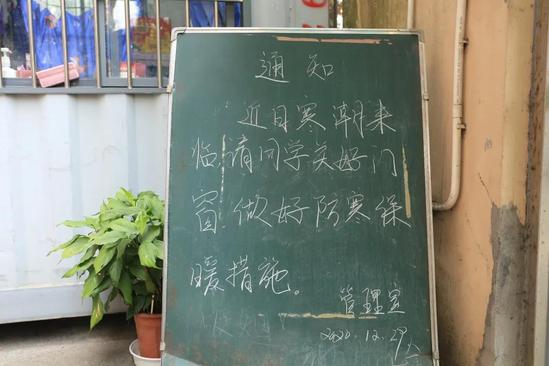 通知
近日寒潮来
临,请同学关好门
窗,做好防寒保
暖措施。
管理室
2020.12.29